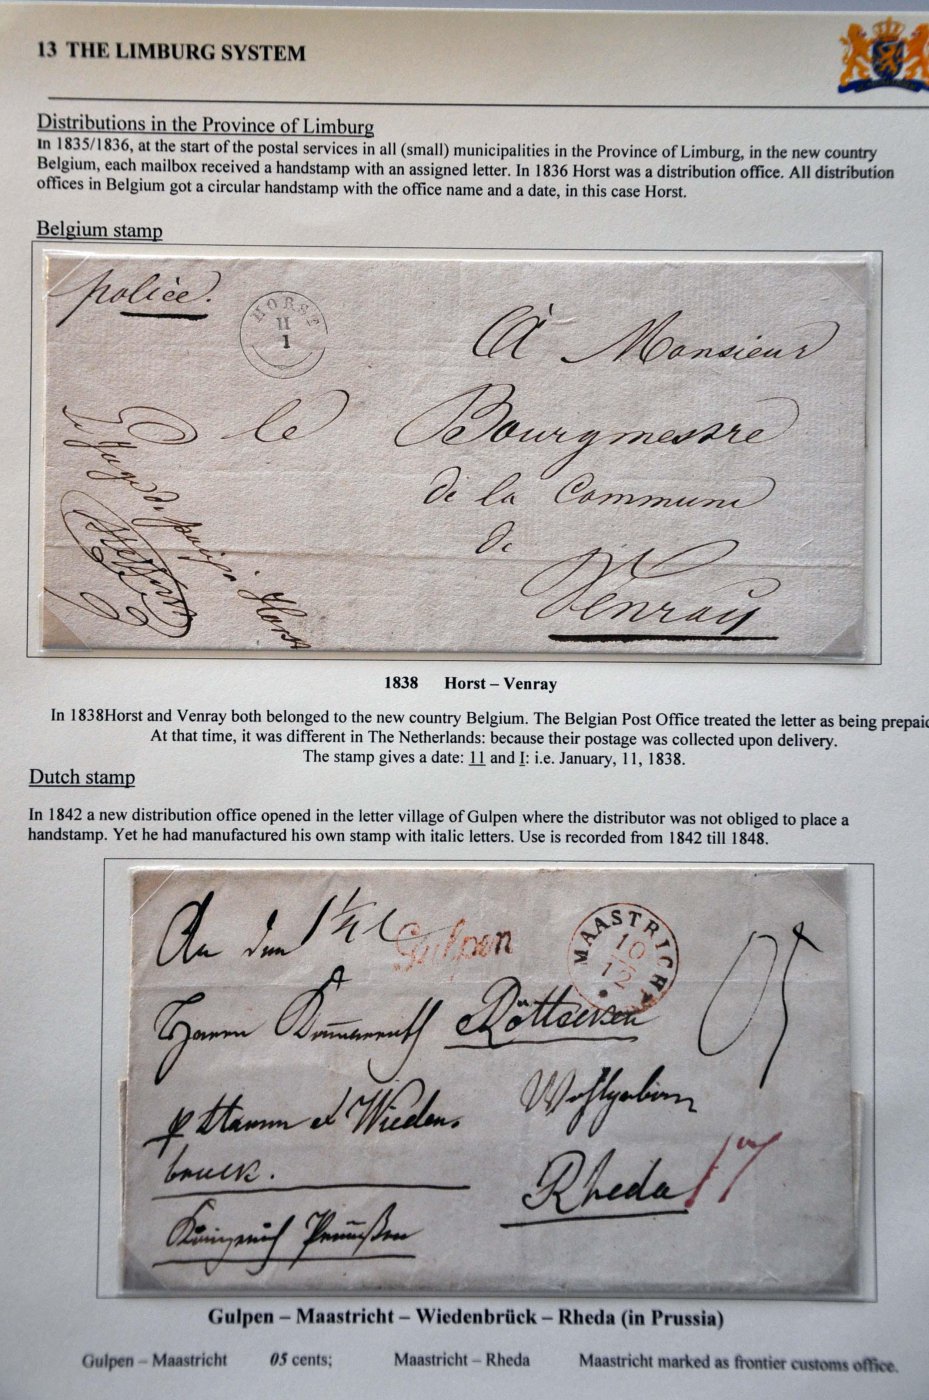 13 THE LIMBURG SYSTEM
Distributions in the Province of Limburg
In 1835/1836, at the start of the postal services in all (small) municipalities in the Province of Limburg, in the new country
Belgium, each mailbox received a handstamp with an assigned letter. In 1836 Horst was a distribution office. All distribution
offices in Belgium got a circular handstamp with the office name and a date, in this case Horst.
Belgium stamp
police.
HORST
11
1
A Monsieur
le Bourgmestre
de la Commune
de
Venray
Horst
1838 Horst – Venray
In 1838Horst and Venray both belonged to the new country Belgium. The Belgian Post Office treated the letter as being prepaid
At that time, it was different in The Netherlands: because their postage was collected upon delivery.
The stamp gives a date: 11 and I: i.e. January, 11, 1838.
Dutch stamp
In 1842 a new distribution office opened in the letter village of Gulpen where the distributor was not obliged to place a
handstamp. Yet he had manufactured his own stamp with italic letters. Use is recorded from 1842 till 1848.
An den
Gulpen
MAASTRICHT
10
12
05
Herrn
Wohlgeborn
p Hamm & Wieden-
brück.
Rheda
17
Königreich Preußen
Gulpen – Maastricht – Wiedenbrück – Rheda (in Prussia)
Gulpen – Maastricht 05 cents; Maastricht – Rheda Maastricht marked as frontier customs office.